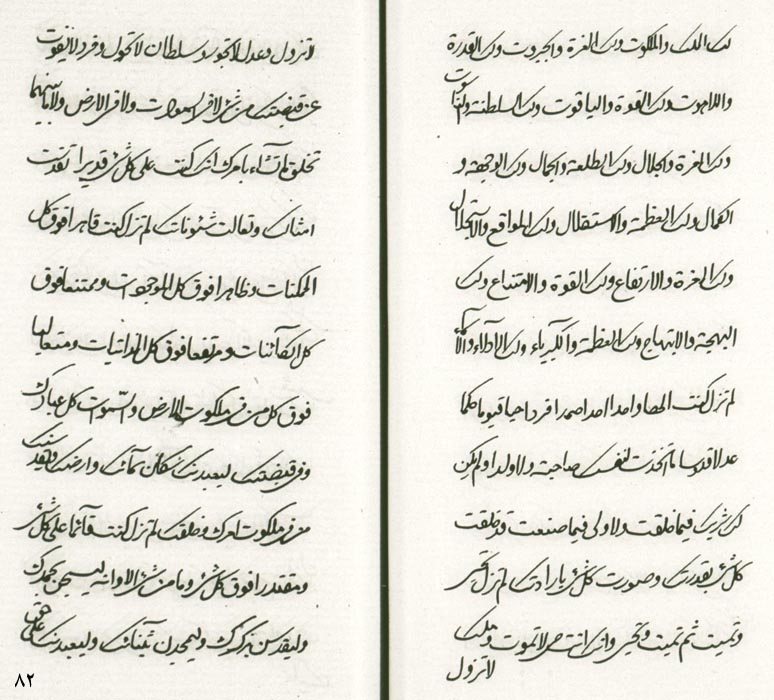 لك الملك والملكوت ولك العزة والجبروت ولك القدرة
واللاهوت ولك القوة والياقوت ولك السلطنة والناسوت
ولك العزة والجلال ولك الطلعة والجمال ولك الوجهة و
الكمال ولك العظمة والاستقلال ولك المواقع والاستجلال
ولك العزة والارتفاع ولك القوة والامتناع ولك
البهجة والابتهاج ولك العظمة والكبرياء ولك الآلاء
لم تزل كنت الها واحدا احدا صمدا فردا حيا قيوما حكما
عدلا قدوسا ما اتخذت لنفسك صاحبة ولا ولدا ولم يكن
لك شريك فيما خلقت ولا ولي فيما صنعت قد خلقت
كل شئ بقدرتك وصورت كل شئ بارادتك لم تزل تحيي
وتميت ثم تميت وتحيي وانك انت حي لا تموت وملك
لا تزول
لا تزول وعدل لا تجور وسلطان لا تحول وفرد لا يفوت
عن قبضتك من شئ لا في السموات ولا في الارض ولا ما بينهما
تخلق ما تشاء بامرك انك كنت على كل شئ قديرا تقدست
امثالك وتعالت شئوناتك لم تزل كنت قاهرا فوق كل
الممكنات وظاهرا فوق كل الموجودات وممتنعا فوق
كل الكائنات ومرتفعا فوق كل الذاتيات ومتعاليا
فوق كل من في ملكوت الارض والسموات كل عبادك
وفي قبضتك ليعبدنك سكان سمائك وارضك وليقدسنك
من في ملكوت امرك وخلقك لم تزل كنت قائما على كل شئ
ومقتدرا فوق كل شئ وما من شئ الا وانه ليسبحن بحمدك
وليقدسن بذكرك وليمجدن بثنائك وليعبدنك حق
٨٢